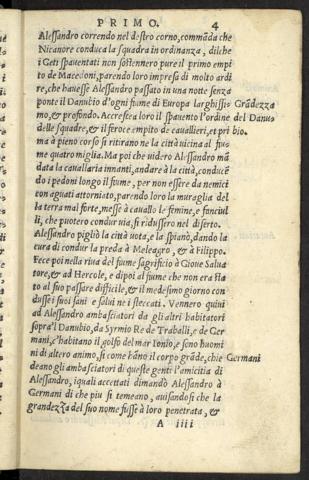 PRIMO. 4
Alessandro correndo nel destro corno, commãda che
Nicanore conduca la squadra in ordinanza, dilche
i Geti spauentati non sostennero pure il primo empi
to de Macedoni, parendo loro impresa di molto ardi
re, che hauesse Alessandro passato in una notte senza
ponte il Danubio d'ogni fiume di Europa larghissi Grãdezza
mo, & profondo. Accresceа loro il spauento l'ordine del Danu
delle squadre, & il feroce empito de cauallieri, et pri bio.
ma à pieno corso si ritirano ne la città uicina al fiu
me quatro miglia. Ma poi che uidero Alessandro mã
data la cauallaria innanti, andare à la città, conducẽ
do i pedoni longo il fiume, per non essere da nemici
con aguati attorniato, parendo loro la muraglia del
la terra mal forte, messe à cauallo le femine, e fanciul
li, che puotero condur uia, si ridussero nel diserto.
Alessandro pigliò la città uota, e la spianò, dando la
cura di condur la preda à Meleagro, & à Filippo.
Fece poi nella riua del fiume sagrificio à Gioue Salua
tore, & ad Hercole, e dipoi al fiume che non era sta
to al suo passare difficile, & il medesimo giorno con
dusse i suoi sani e salui ne i steccati. Vennero quiui
ad Alessandro ambasciatori da gli altri habitatori
sopra'l Danubio, da Syrmio Re de Traballi, e de Ger
mani, c'habitano il golfo del mar Ionio, e sono huomi
ni di altero animo, si come hãno il corpo grãde, chie Germani
deano gli ambasciatori di queste genti l'amicitia di
Alessandro, iquali accettati dimandò Alessandro à
Germani di che piu si temeano, auisandosi che la
grandezza del suo nome fusse à loro penetrata, &
A iiii